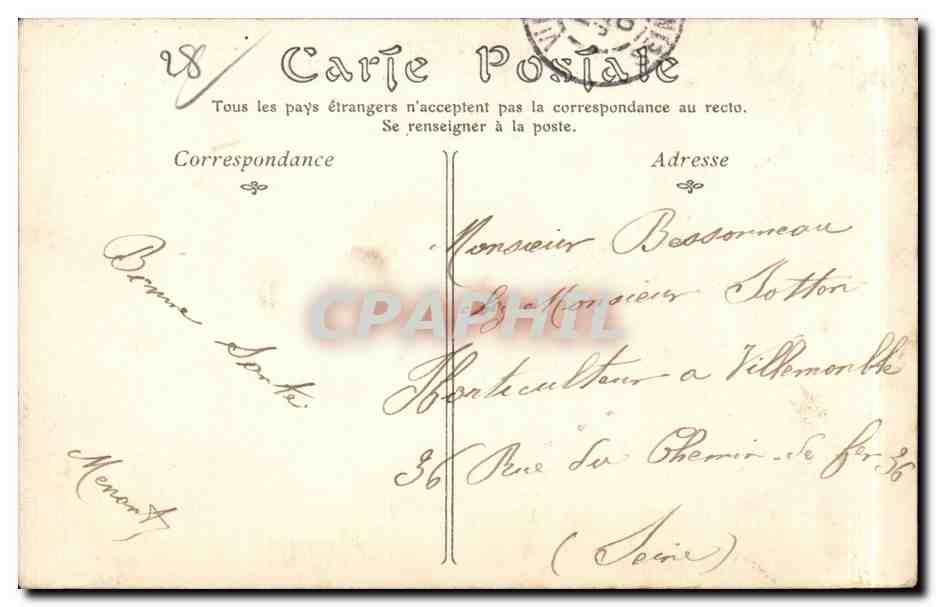 28
Carte Postale
Tous les pays étrangers n'acceptent pas la correspondance au recto.
Se renseigner à la poste.
Correspondance
Adresse
Bonne
Santé
Menant
Monsieur Bessonneau
chez Monsieur Jotton
Horticulteur a Villemonble
36 Rue du Chemin de fer 36
(Seine)
CPAPHIL